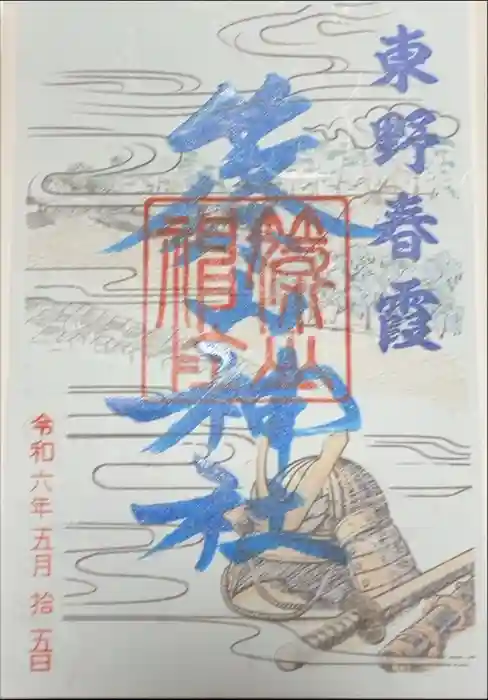 東野春霞
篠山神社
令和六年五月拾五日